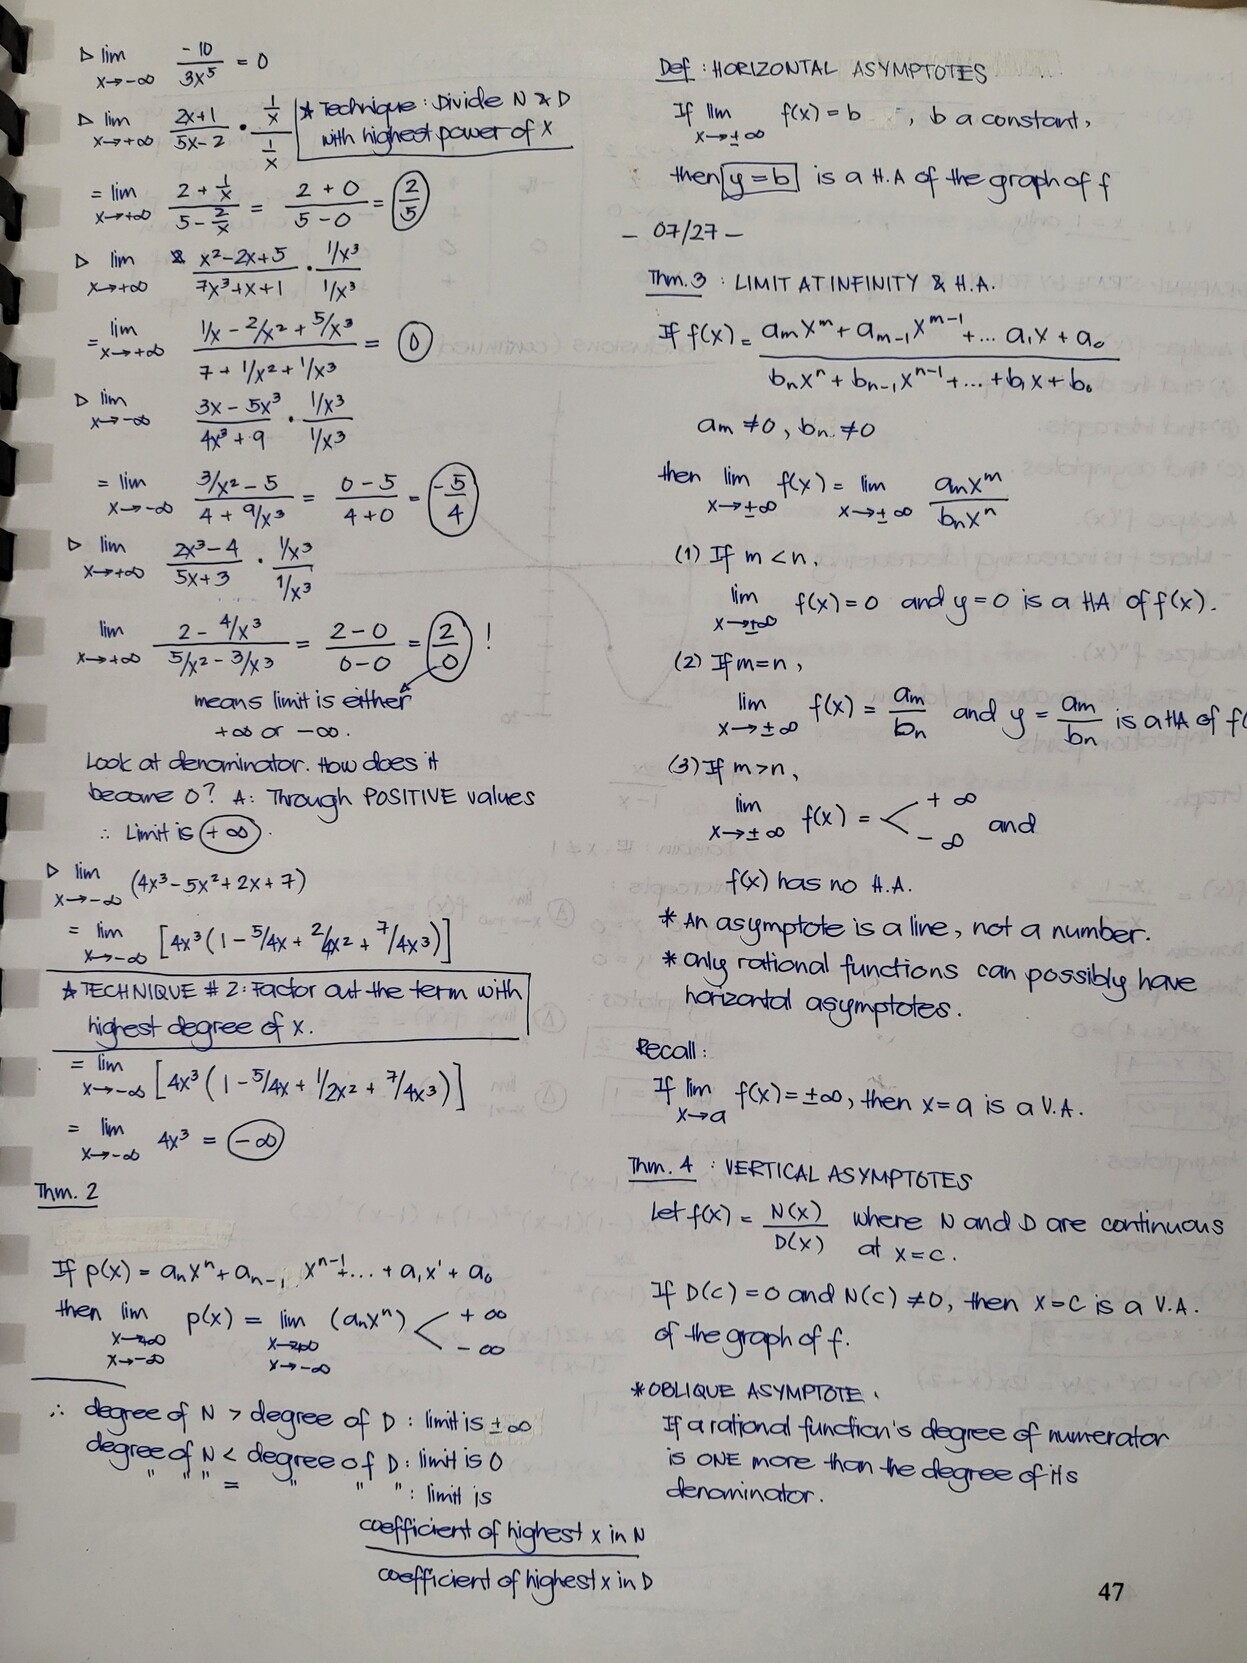 ▷ lim x→-∞ -10/3x⁵ = 0
▷ lim x→+∞ 2x+1/5x-2 · 1/x / 1/x
★ Technique: Divide N & D
with highest power of x
= lim x→+∞ 2 + 1/x / 5 - 2/x = 2 + 0 / 5 - 0 = 2/5
▷ lim x→+∞ x²-2x+5 / 7x³+x+1 · 1/x³ / 1/x³
= lim x→+∞ 1/x - 2/x² + 5/x³ / 7 + 1/x² + 1/x³ = 0
▷ lim x→-∞ 3x - 5x³ / 4x³ + 9 · 1/x³ / 1/x³
= lim x→-∞ 3/x² - 5 / 4 + 9/x³ = 0 - 5 / 4 + 0 = -5/4
▷ lim x→+∞ 2x³-4 / 5x+3 · 1/x³ / 1/x³
lim x→+∞ 2 - 4/x³ / 5/x² - 3/x³ = 2 - 0 / 0 - 0 = 2/0 !
means limit is either
+∞ or -∞.
Look at denominator. How does it
become 0? A: Through POSITIVE values
∴ Limit is +∞.
▷ lim x→-∞ (4x³ - 5x² + 2x + 7)
= lim x→-∞ [4x³(1 - 5/4x + 2/4x² + 7/4x³)]
★ TECHNIQUE # 2: Factor out the term with
highest degree of x.
= lim x→-∞ [4x³(1 - 5/4x + 1/2x² + 7/4x³)]
= lim x→-∞ 4x³ = -∞
Thm. 2
If p(x) = aₙxⁿ + aₙ₋₁ xⁿ⁻¹ + ... + a₁x' + a₀
then lim x→+∞ x→-∞ p(x) = lim x→+∞ x→-∞ (aₙxⁿ) < +∞ -∞
∴ degree of N > degree of D : limit is ±∞
degree of N < degree of D : limit is 0
" " " = " " " : limit is
coefficient of highest x in N
coefficient of highest x in D
Def : HORIZONTAL ASYMPTOTES
If lim x→±∞ f(x) = b , b a constant,
then y = b is a H.A of the graph of f
- 07/27 -
Thm. 3 : LIMIT AT INFINITY & H.A.
If f(x) = aₘxᵐ + aₘ₋₁xᵐ⁻¹ + ... a₁x + a₀ / bₙxⁿ + bₙ₋₁xⁿ⁻¹ + ... + b₁x + b₀
aₘ ≠ 0, bₙ ≠ 0
then lim x→±∞ f(x) = lim x→±∞ aₙxᵐ / bₙxⁿ
(1) If m < n,
lim x→±∞ f(x) = 0 and y = 0 is a HA of f(x).
(2) If m = n,
lim x→±∞ f(x) = aₘ/bₙ and y = aₘ/bₙ is a HA of f(
(3) If m > n,
lim x→±∞ f(x) = < +∞ -∞ and
f(x) has no H.A.
* An asymptote is a line, not a number.
* Only rational functions can possibly have
horizontal asymptotes.
Recall:
If lim x→a f(x) = ±∞, then x = a is a V.A.
Thm. 4 : VERTICAL ASYMPTOTES
Let f(x) = N(x)/D(x) where N and D are continuous
at x = c.
If D(c) = 0 and N(c) ≠ 0, then x = c is a V.A.
of the graph of f.
* OBLIQUE ASYMPTOTE.
If a rational function's degree of numerator
is ONE more than the degree of its
denominator.
47